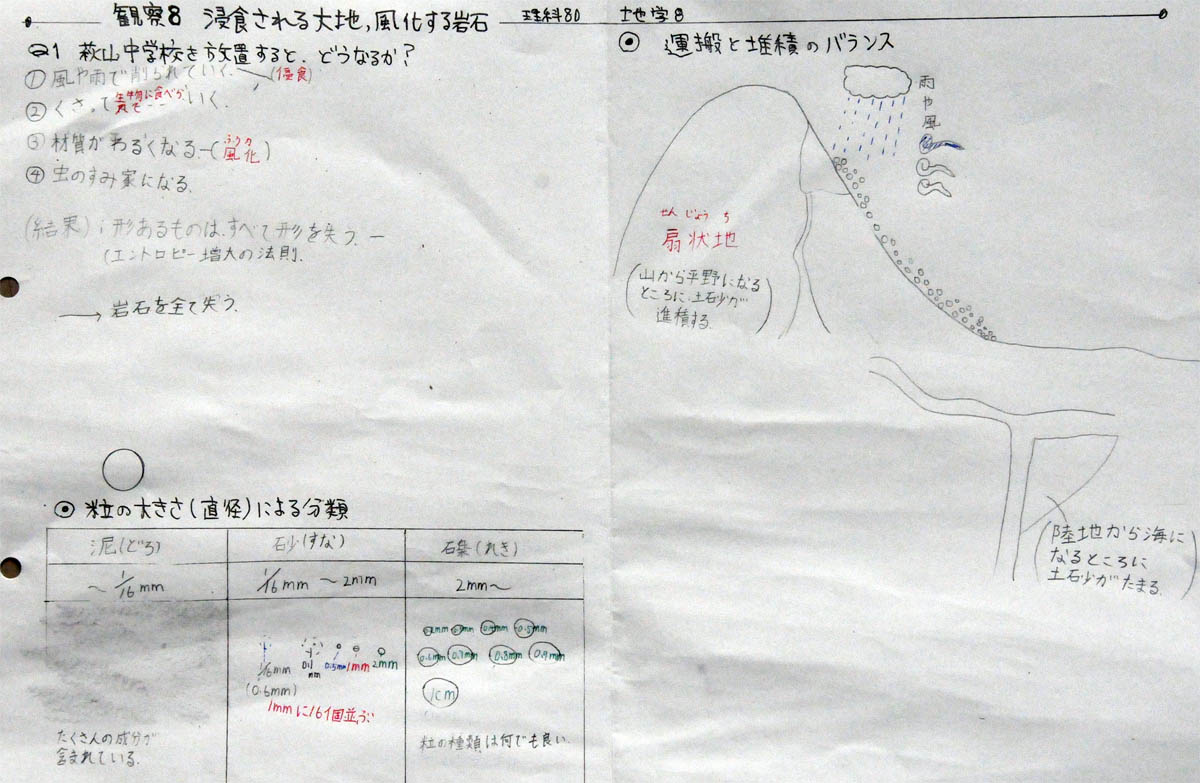 観察8 浸食される大地,風化する岩石
理科80 地学8
Q1 萩山中学校を放置すると、どうなるか?
① 風や雨で削られていく。 (侵食)
② くさっていく。
生物に食べら
③ 材質がわるくなる。-(風化)
ふうか
④ 虫のすみ家になる。
(結果) 形あるものは、すべて形を失う。
(エントロピー増大の法則.
→ 岩石を全て失う.
◎ 粒の大きさ(直径)による分類
泥(どろ) 砂(すな) 礫(れき)
~1/16mm 1/16mm ~2mm 2mm~
1/16mm 0.1mm 0.5mm 1mm 2mm
(0.6mm)
1mmに16個並ぶ
0.4mm 0.5mm
0.6mm 0.7mm 0.8mm 0.9mm
1cm
たくさんの成分が
含まれている.
粒の種類は何でも良い.
◎ 運搬と堆積のバランス
雨や風
せんじょうち
扇状地
(山から平野になる
ところに土砂が
進積する.)
(陸地から海に
なるところに
土砂がたまる.)